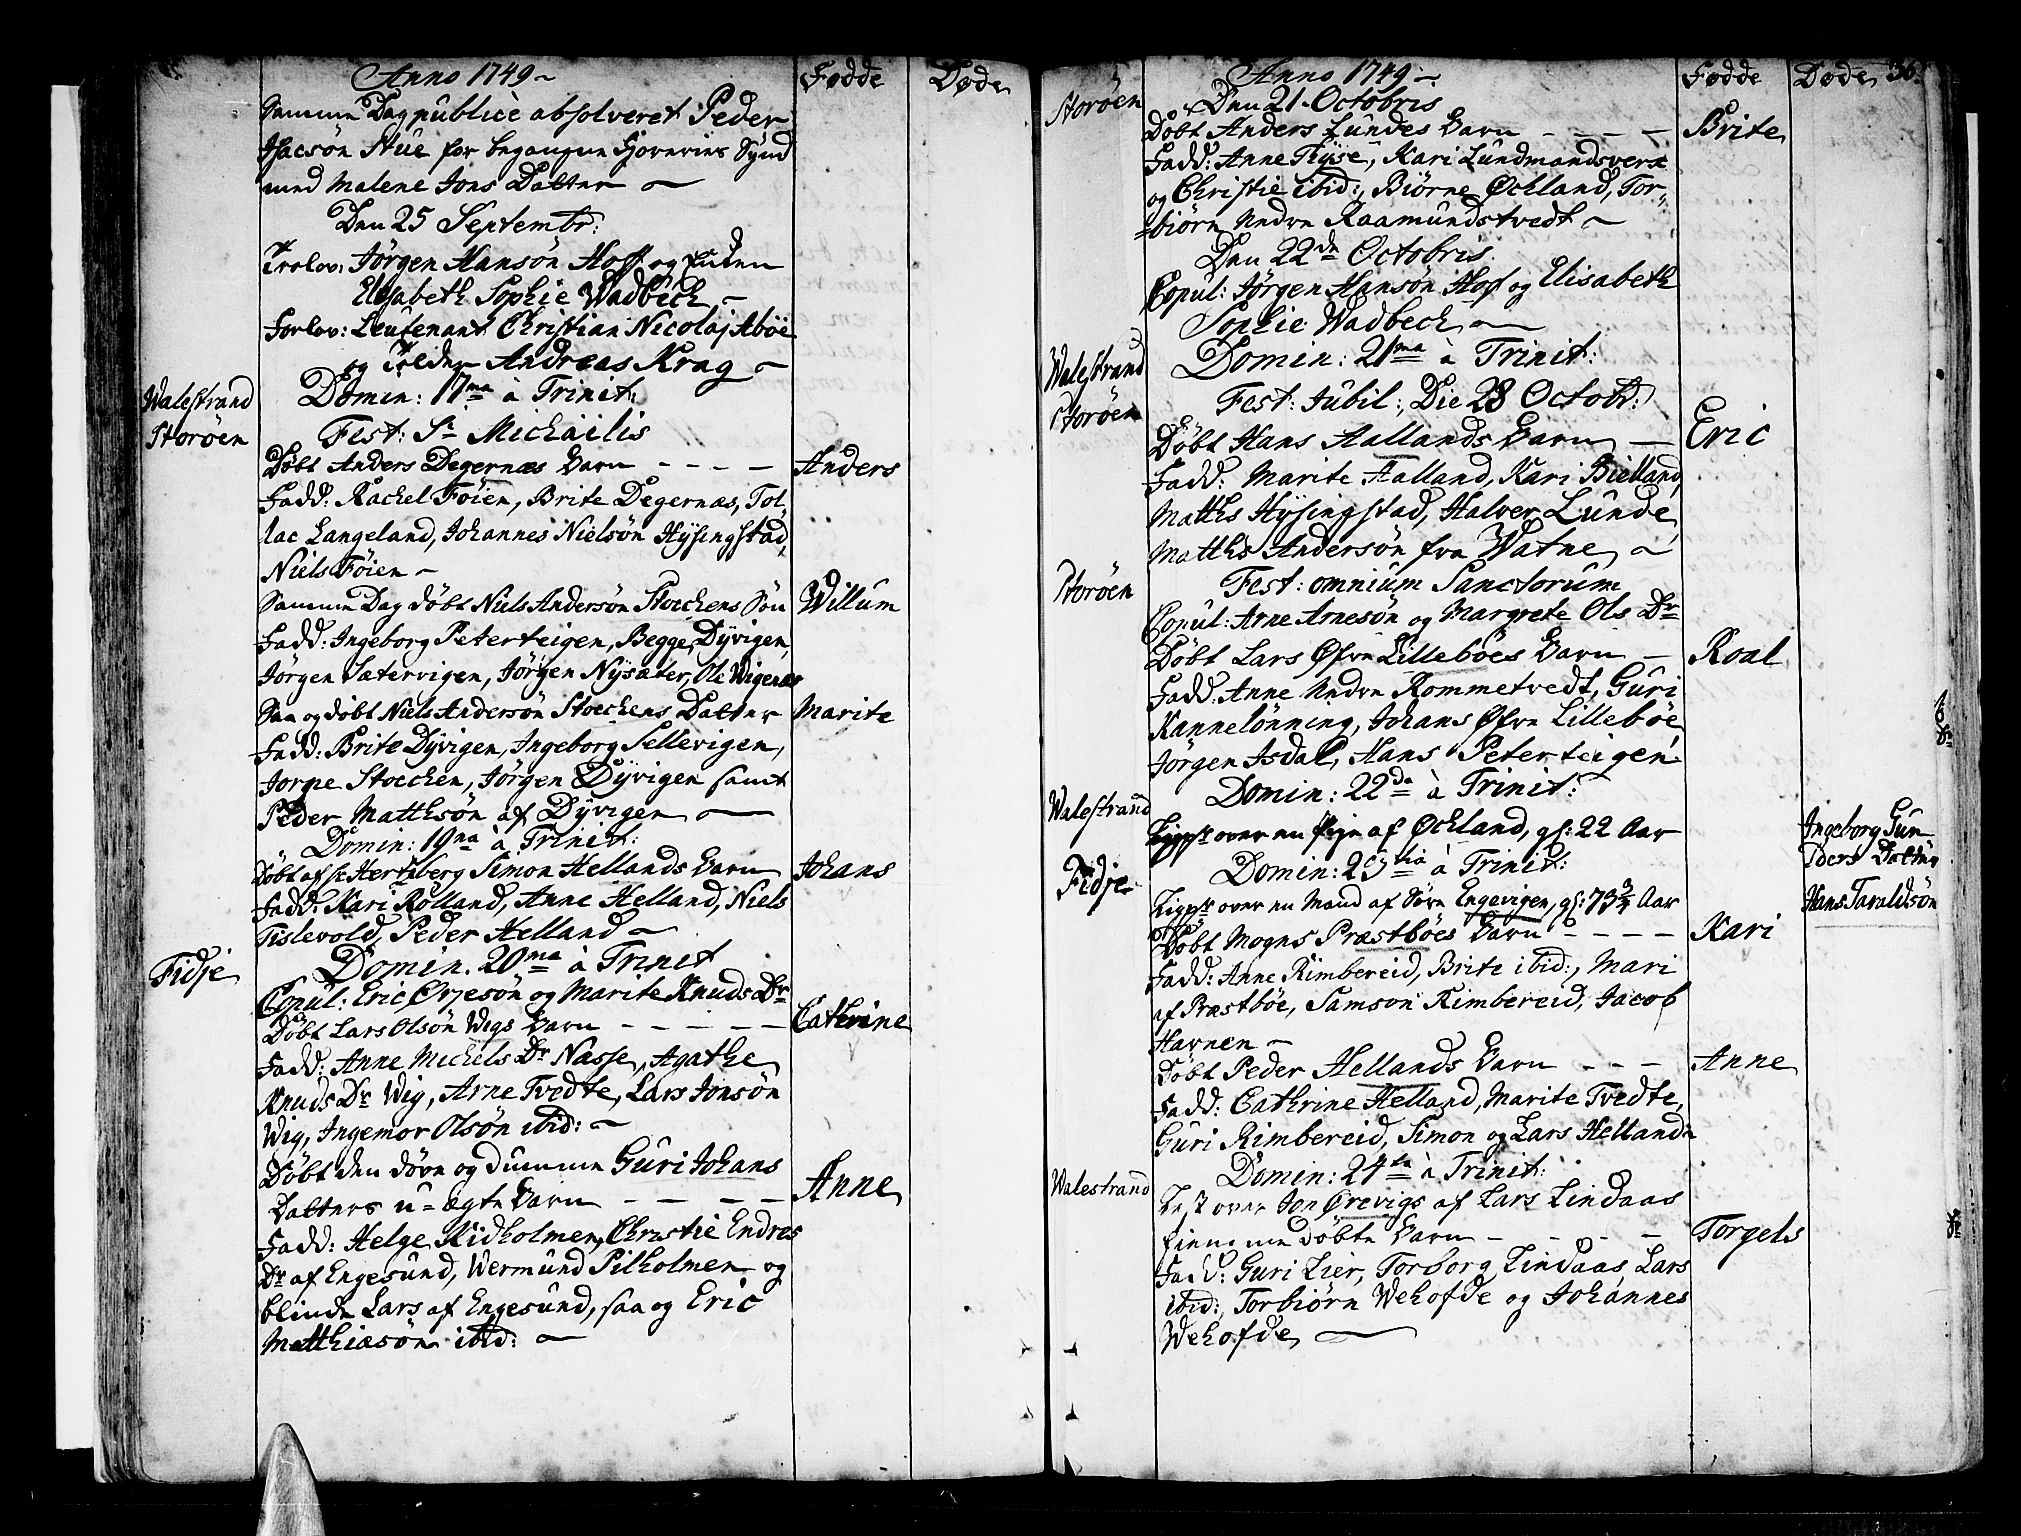 Anno 1749 Fødde Døde
Samme Dag publicè absolveret Peder
Isacsön Stue for begangne Hoveries Synd
med Malene Jons Datter
Den 25 Septembr:
Trolov: Jörgen Hansön Hoff og Enken
Elisabeth Sophie Wadbech
Forlov: Leutenant Christian Nicolaj Aböe
og Andreas Krag
Domin: 17ma à Trinit:
Walestrand
Storöen Fest: St Michaëlis
Döbt Anders Degernæs Barn - - - - Anders
Fadd: Rachel Föien, Brite Degernæs, Tol-
lac Langeland, Johannes Nielsön Hysingstad,
Niels Föien
Samme Dag döbt Niels Andersön Stoechens Sön Willum
Fadd: Ingeborg Peterteigen, Begge Dyvigen,
Jörgen Sætervigen, Jörgen Nysæter, Ole Wigenæs
Saa og döbt Niels Andersön Stoechens Datter Marite
Fadd: Brite Dyvigen, Ingeborg Sellevigen,
Jorgie Stoechen, Jörgen Dyvigen samt
Peder Matthsön af Dyvigen
Domin: 19na à Trinit:
Döbt af Hr Hertzberg Simon Hellands Barn Johans
Fadd: Kari Rölland, Anne Helland, Niels
Tislevold, Peder Helland
Fidje Domin. 20ma à Trinit
Copul: Eric Ørjesön og Marite Knuds Dr
Döbt Lars Olsön Wigs Barn - - - - - Cathrine
Fadd: Anne Michels Dr Nasse, Agathe
Knuds Dr Wig, Arne Tvedte, Lars Jonsön
Wig, Ingemor Olsön ibid:
Döbt den döve og dumme Guri Johans
Datters u-ægte Barn - - - - Anne
Fadd: Helge Kidholmen, Christie Endres
Dr af Engesund, Wermund Pilholmen og
blinde Lars af Engesund, saa og Eric
Matthiasön ibid:
Anno 1749 Fødde Døde 36
Storöen Den 21 Octobris
Döbt Anders Lundes Barn - - - - Brite
Fadd: Anne Tyse, Kari Lundmandsverk
og Christie ibid:, Biörne Øchland, Tor-
biörn Nedre Raamundstvedt
Den 22de Octobris
Copul: Jörgen Hansön Hof og Elisabeth
Sophie Wadbech
Walestrand Domin: 21ma à Trinit:
Storöen Fest: Jubil:, Die 28 Octobr:
Döbt Hans Aallands Barn - Eric
Fadd: Marite Aalland, Kari Bielland,
Matths Hysingstad, Halver Lunde,
Matths Andersön fra Watne
Storöen Fest: omnium Sanctorum
Copul: Arne Arnesön og Margrete Ols Dr
Döbt Lars Øfre Lilleböes Barn - Roal
Fadd: Anne Nedre Rommetvedt, Guri
Kannelönning, Johans Øfre Lilleböe
Jörgen Isdal, Hans Peterteigen.
Domin: 22da à Trinit:
Walestrand Ligpr over en Pige af Øchland, gl: 22 Aar Ingeborg Gun-
ders Datter
Fidje Domin: 23tia à Trinit:
Ligpr over en Mand af Søre Engevigen, gl: 73 3/4 Aar Hans Taraldsön
Döbt Mogns Præstböes Barn - - - - Kari
Fadd: Anne Rimbereid, Brite ibid:, Mari
af Præstböe, Samson Rimbereid, Jacob
Havnen
Döbt Peder Hellands Barn - - - Anne
Fadd: Cathrine Helland, Marite Tvedte,
Guri Rimbereid, Simon og Lars Helland
Walestrand Domin: 24ta à Trinit:
Lest over Jon Ørevigs af Lars Lindaas
hiemme döbte Barn - - - - Torgels
Fadd: Guri Lier, Torborg Lindaas Lars
ibid:, Torbiörn Wehofde og Johannes
Wehofde